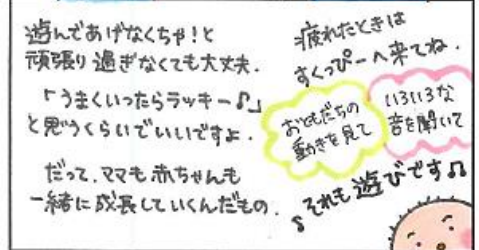 遊んであげなくちゃ!と
頑張り過ぎなくても大丈夫.
「うまくいったらラッキー♪」
と思うくらいでいいですよ.
だって、ママも赤ちゃんも
一緒に成長していくんだもの.
疲れたときは
すくっぴーへ来てね.
おともだちの
動きを見て
いろいろな
音を聞いて
それも遊びです♫